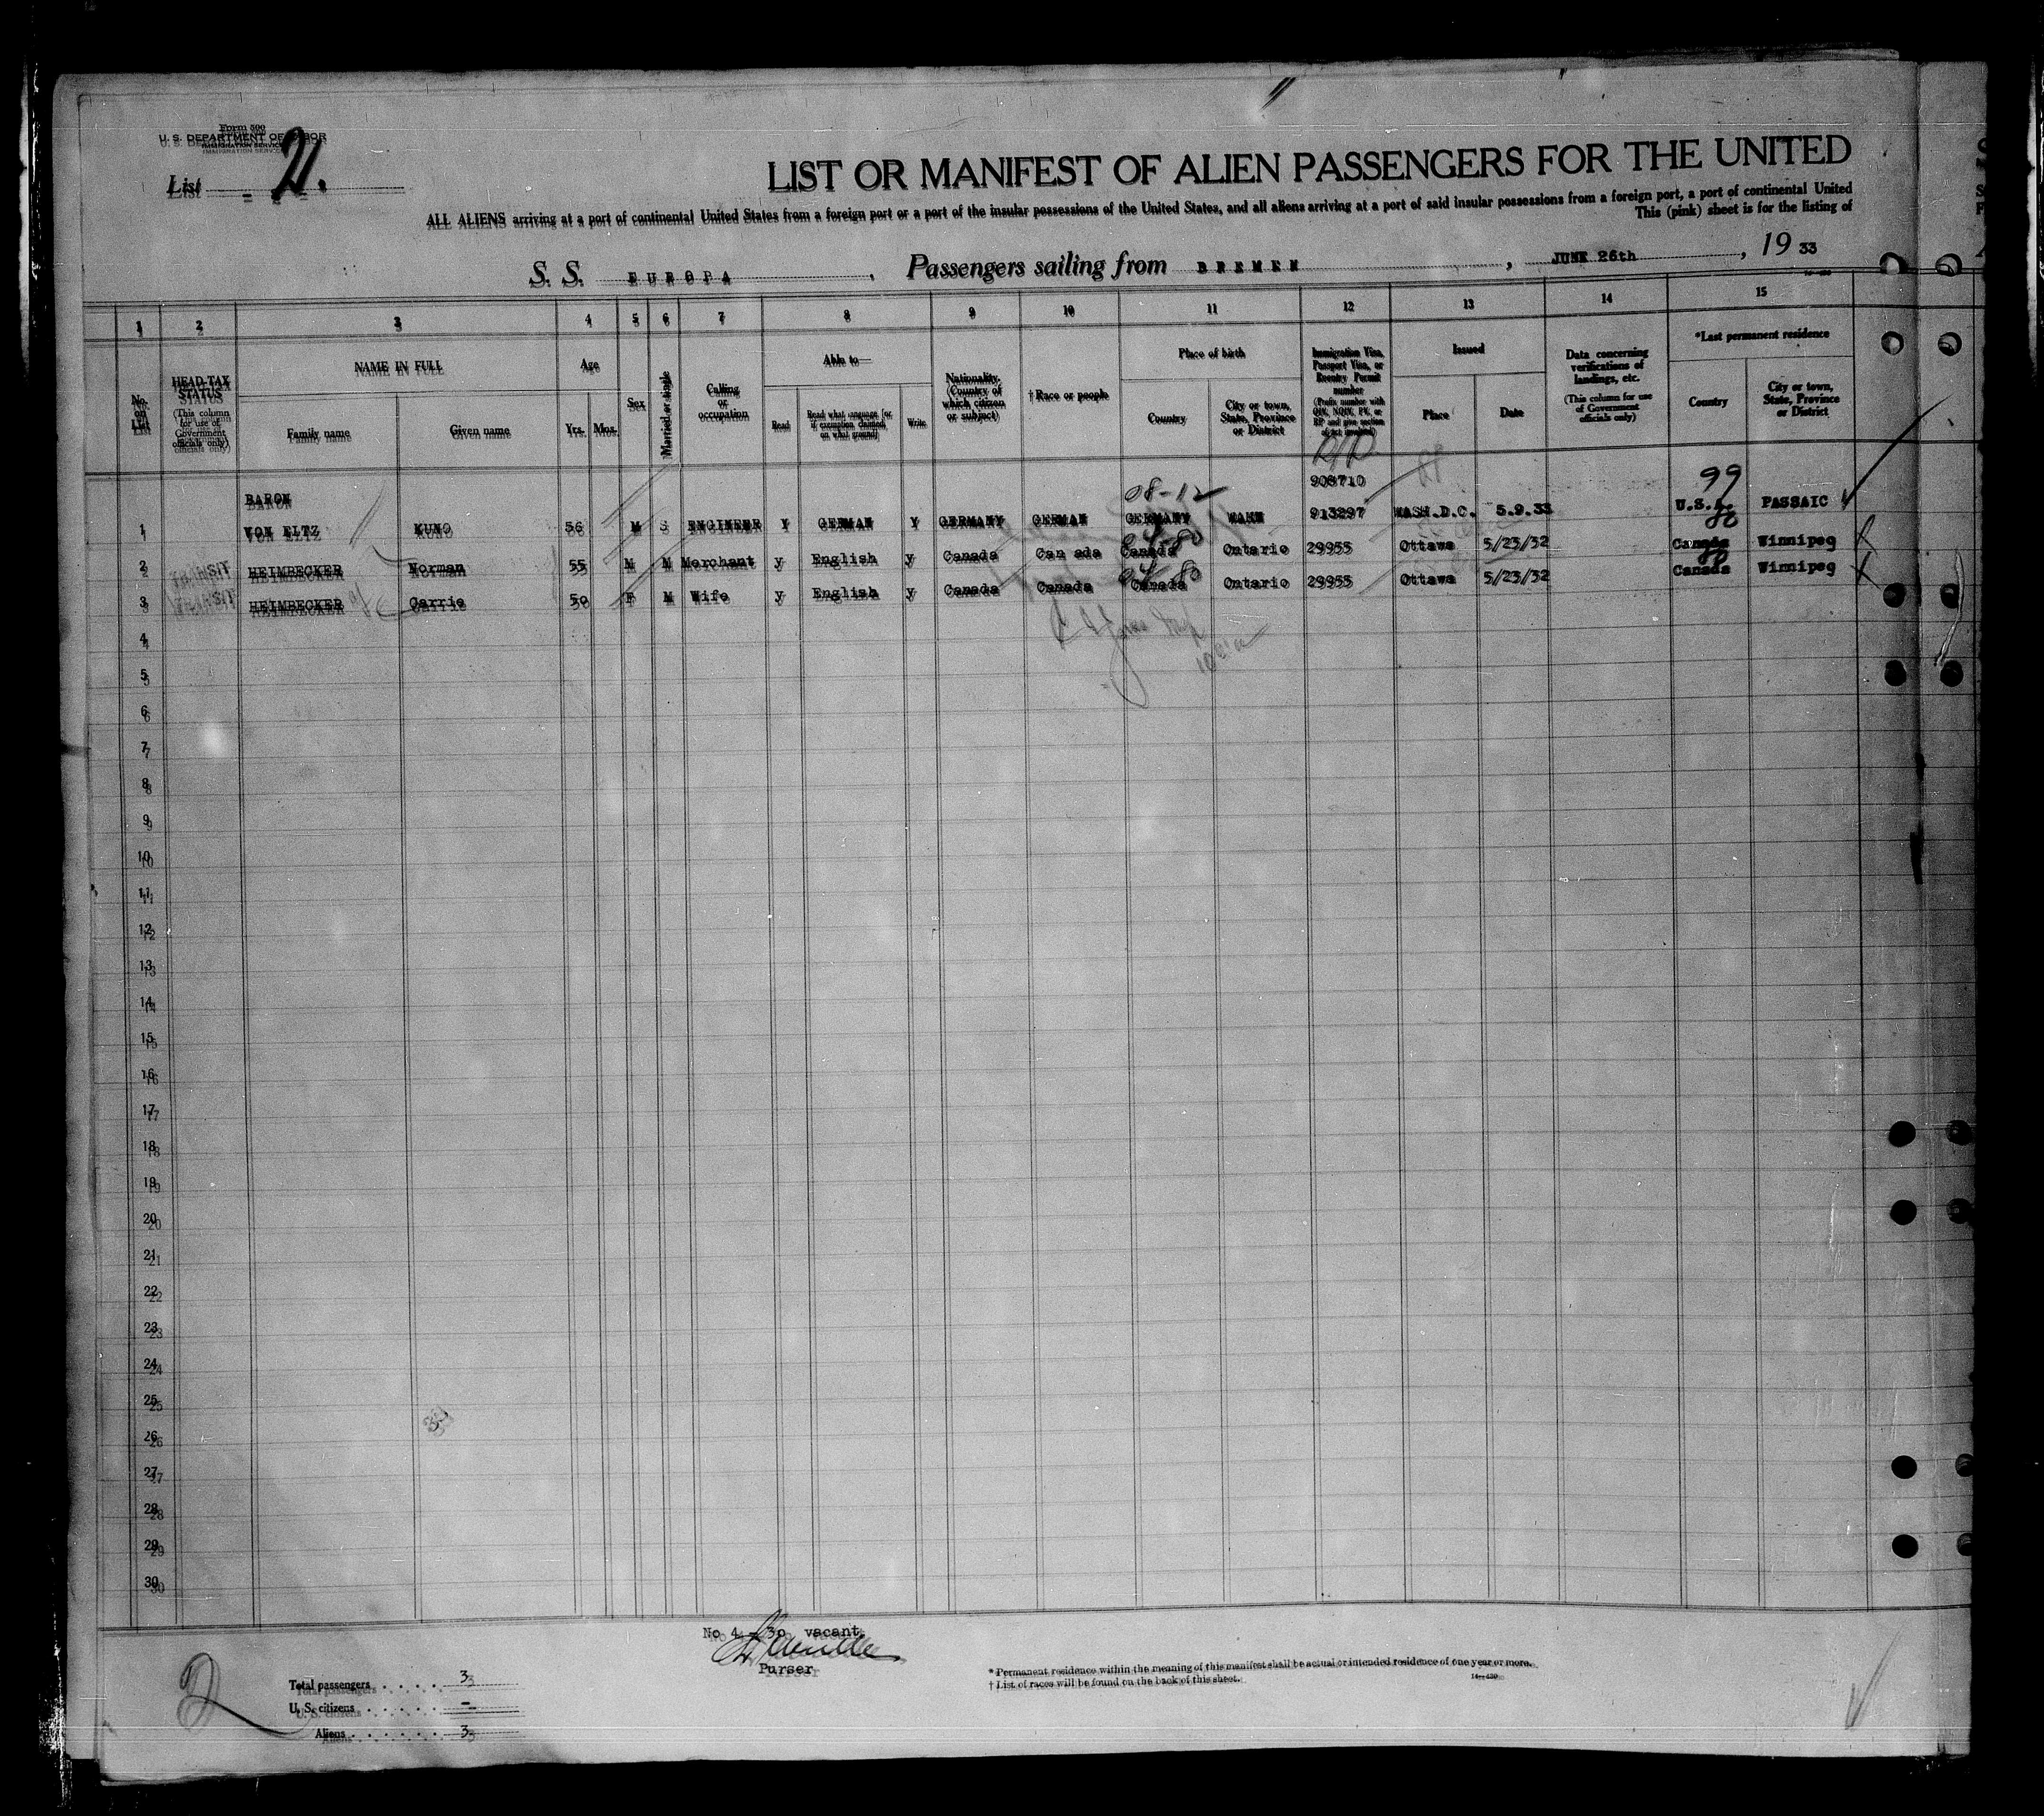 Form 500
U. S. DEPARTMENT OF LABOR
IMMIGRATION SERVICE
List 21.
LIST OR MANIFEST OF ALIEN PASSENGERS FOR THE UNITED
ALL ALIENS arriving at a port of continental United States from a foreign port or a port of the insular possessions of the United States, and all aliens arriving at a port of said insular possessions from a foreign port, a port of continental United
This (pink) sheet is for the listing of
S. S. EUROPA, Passengers sailing from BREMEN, JUNE 26th, 19 33
1 2 3 4 5 6 7 8 9 10 11 12 13 14 15
No. on List
HEAD-TAX STATUS (This column for use of Government officials only)
NAME IN FULL
Family name Given name
Age
Yrs. Mos.
Sex
Married or single
Calling or occupation
Able to—
Read Read what language [or if exemption claimed, on what ground] Write
Nationality. (Country of which citizen or subject)
† Race or people
Place of birth
Country City or town, State, Province or District
Immigration Visa, Passport Visa, or Reentry Permit number (Prefix number with QIV, NQIV, PV, or RP and give section of Act involved)
Issued
Place Date
Data concerning verifications of landings, etc. (This column for use of Government officials only)
*Last permanent residence
Country City or town, State, Province or District
R/P
08-12 99
BARON 908710
1 VON ELTZ KUNO 56 M S ENGINEER Y GERMAN Y GERMANY GERMAN GERMANY 913297 WASH.D.C. 5.9.33 U.S. PASSAIC
2 TRANSIT HEIMBECKER Norman 55 M M Merchant y English y Canada Can ada Canada Ontario 29955 Ottawa 5/23/32 Canada Winnipeg
3 TRANSIT HEIMBECKER Carrie 50 F M Wife y English y Canada Canada Canada Ontario 29955 Ottawa 5/23/32 Canada Winnipeg
4
5
6
7
8
9
10
11
12
13
14
15
16
17
18
19
20
21
22
23
24
25
26
27
28
29
30
No 4 - 30 vacant.
Purser
2
Total passengers . . . . . . 3
U. S. citizens . . . . . . . –
Aliens . . . . . . . 3
* Permanent residence within the meaning of this manifest shall be actual or intended residence of one year or more.
† List of races will be found on the back of this sheet.
14—430